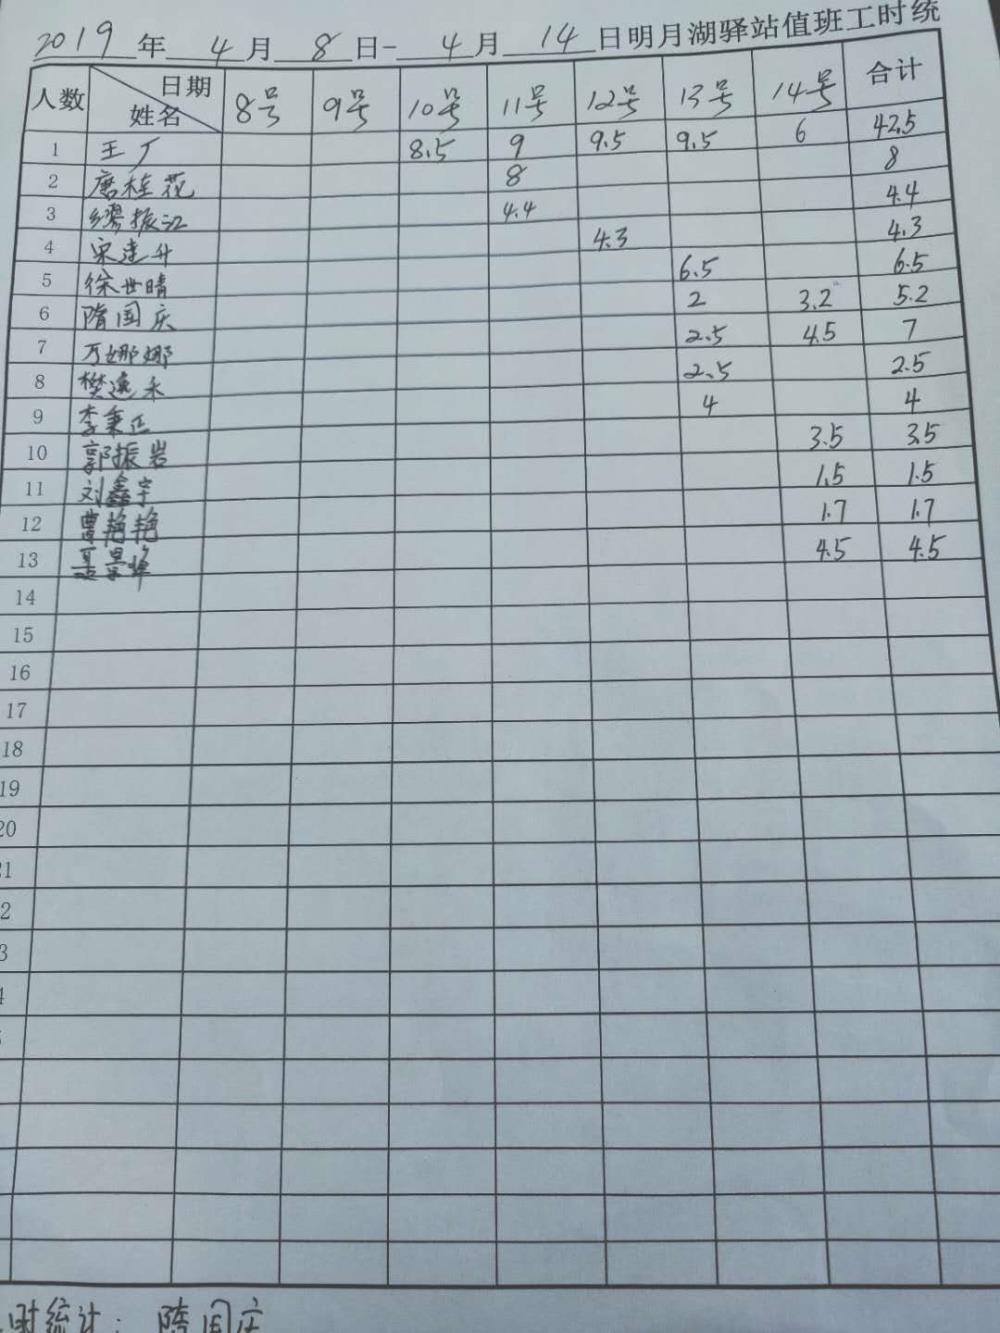 2019 年 4 月 8 日- 4 月 14 日明月湖驿站值班工时统
人数 日期 姓名 8号 9号 10号 11号 12号 13号 14号 合计
1 王广 8.5 9 9.5 9.5 6 42.5
2 唐桂花 8 8
3 缪振江 4.4 4.4
4 宋建升 4.3 4.3
5 徐世晴 6.5 6.5
6 隋国庆 2 3.2 5.2
7 万娜娜 2.5 4.5 7
8 樊远永 2.5 2.5
9 李秉正 4 4
10 郭振岩 3.5 3.5
11 刘鑫宇 1.5 1.5
12 曹艳艳 1.7 1.7
13 4.5 4.5
14
15
16
17
18
19
20
时统计: 隋国庆